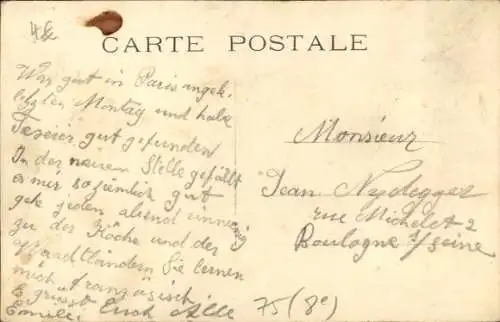 CARTE POSTALE
War gut in Paris angek.
letzten Montag und habe
gut gefunden
In der neuen Stelle gefällt
es mir so ziemlich gut
gehe jeden abend
zu der Köche und der
Sie lernen
mich französisch
Es grüsst Euch Alle
Monsieur
Jean Nydegger
rue Michelet 2
Boulogne s/seine
75 (8e)